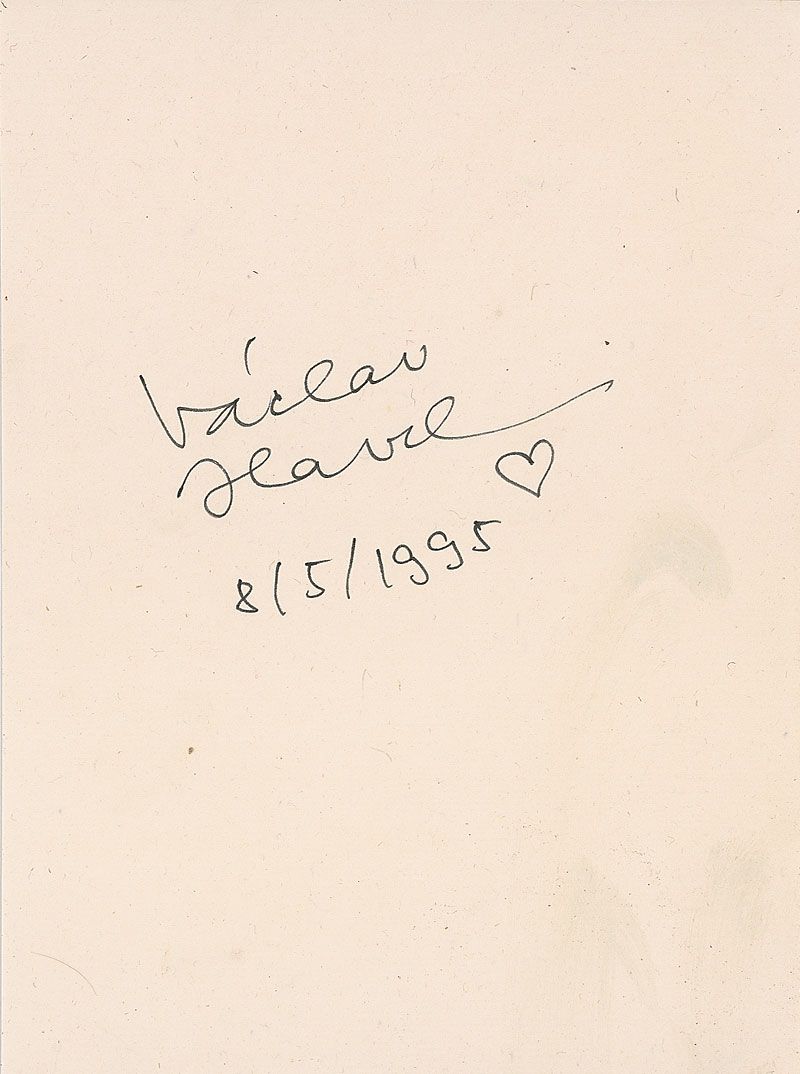 Václav
Havel ♡
8/5/1995